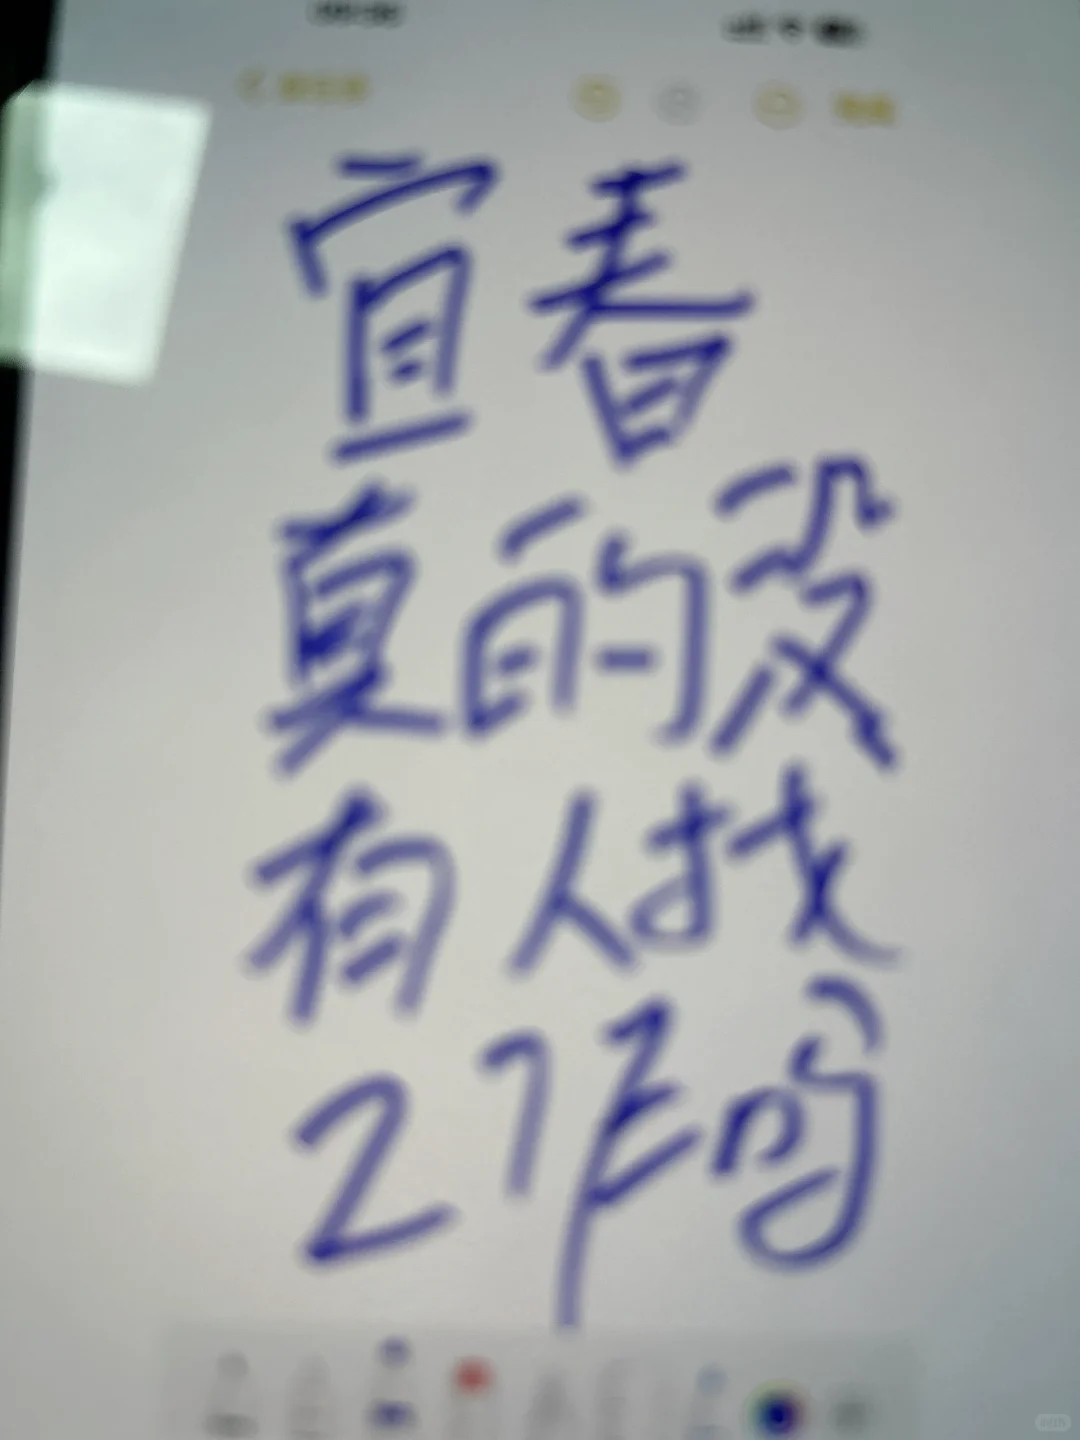 宜春
真的没
有人找
工作吗